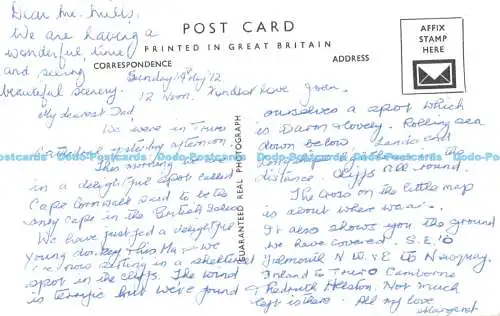 Dear Mr. Mills,
We are having a
wonderful time
and seeing
beautiful scenery.
Kindest Love Joan.
POST CARD
PRINTED IN GREAT BRITAIN
CORRESPONDENCE
ADDRESS
AFFIX
STAMP
HERE
GUARANTEED REAL PHOTOGRAPH
Sunday 19th May '12
12 Noon.
My dearest Dad,
We were in Truro
Cathedral yesterday afternoon.
This morning we
in a delightful spot called
Cape Cornwall said to be the
only Cape in the British Isles.
We have just fed a delightful
young donkey this Mg & we
are now sitting in a sheltered
spot in the cliffs. The wind
is terrific but we've found
ourselves a spot which
is Warm & lovely. Rolling sea
down below Lands End
the
distance. Cliffs all round.
The Cross on the little map
is about where we are.
It also shows you the ground
we have covered. S.E. to
Falmouth N.W. & E to Newquay.
Inland to Truro Camborne
& Redruth Helston. Not much
left is there. All my love
Margaret